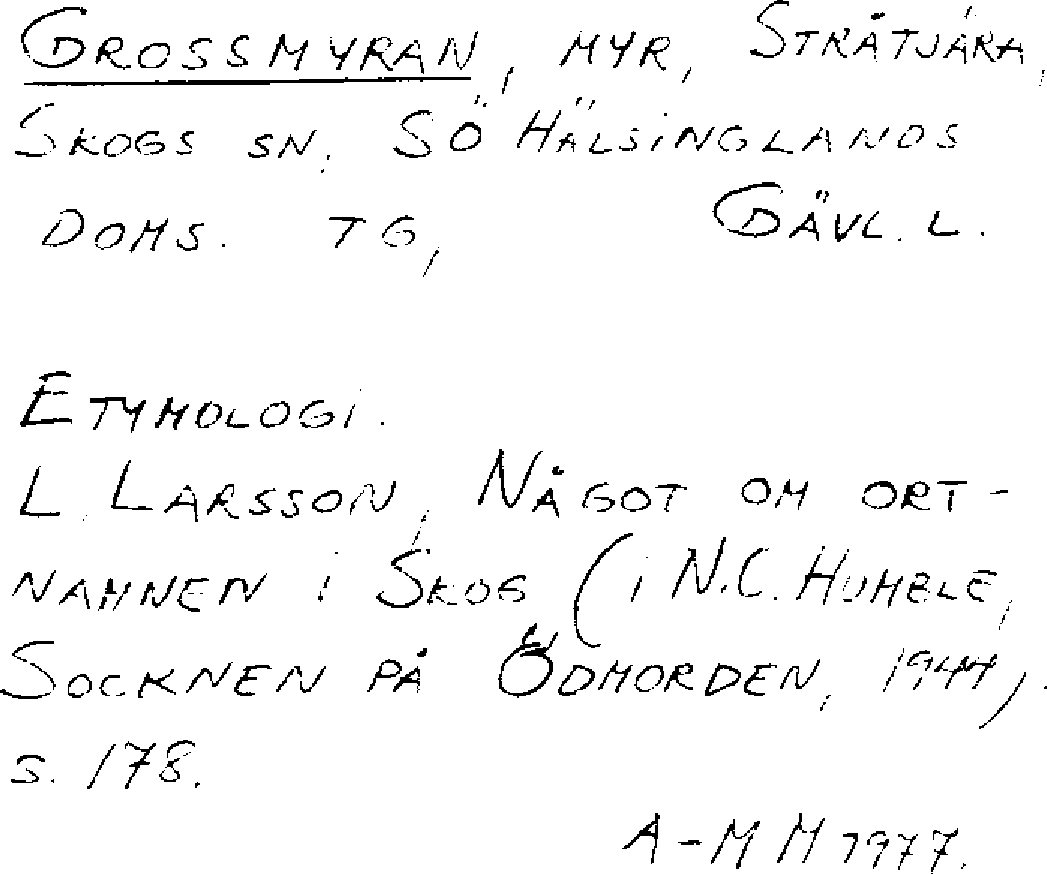 GROSSMYRAN, MYR, STRÅTJÄRA,
SKOGS SN. SÖ HÄLSINGLANDS
DOMS. TG, GÄVL. L.
ETYMOLOGI.
L. LARSSON, NÅGOT OM ORT-
NAMNEN I SKOG (i N.C. HUMBLE,
SOCKNEN PÅ ÖDMORDEN, 1944).
S. 178.
A-M M 1977.